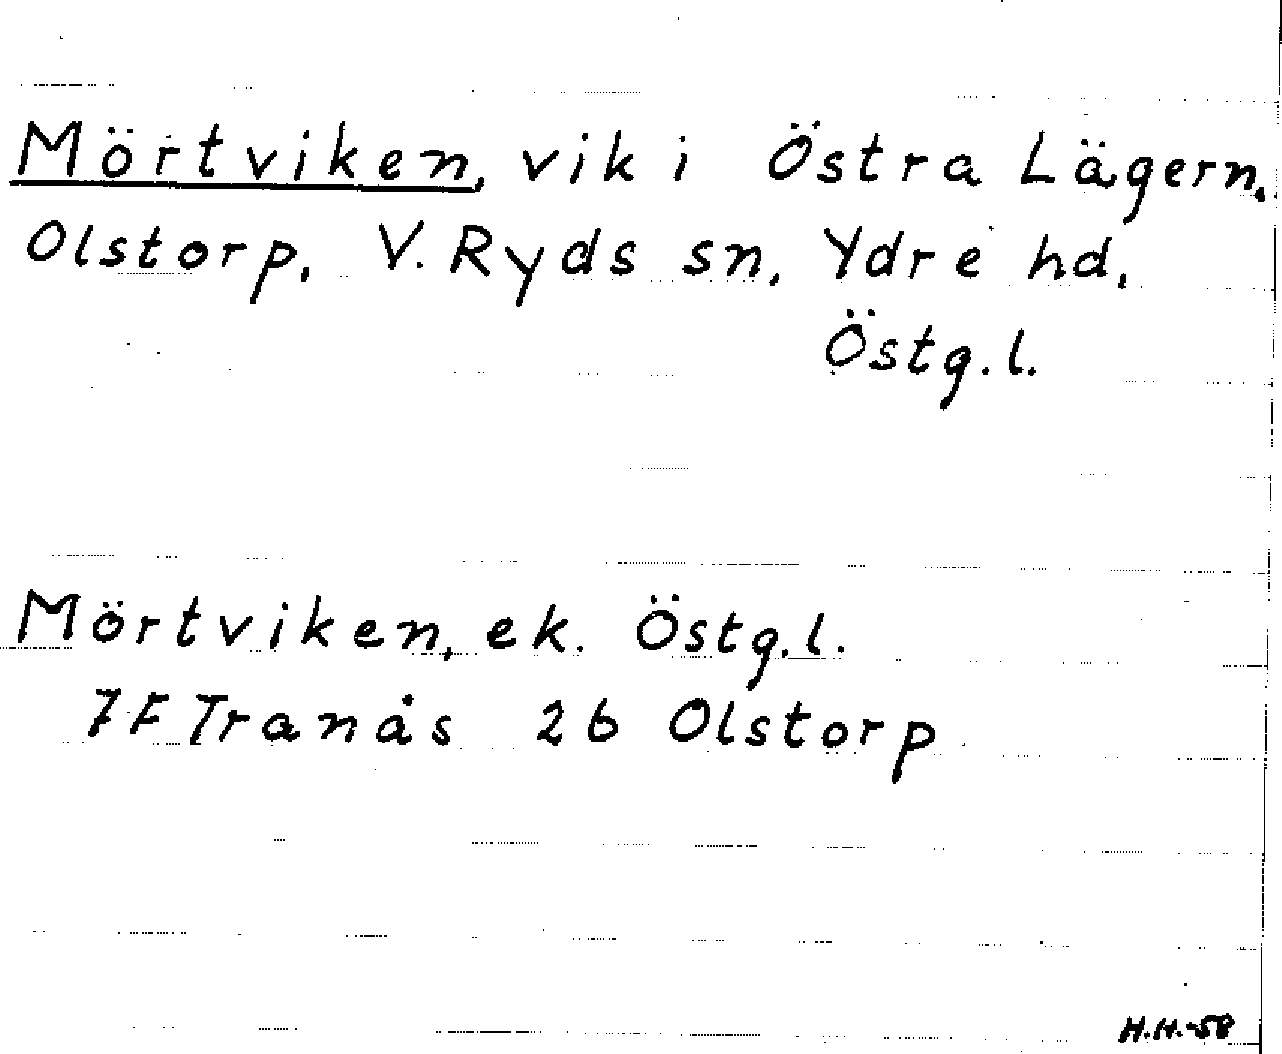 Mörtviken, vik i Östra Lägern.
Olstorp, V. Ryds sn, Ydre hd,
Östg.l.
Mörtviken, ek. Östg.l.
7F Tranås 2b Olstorp
H.H.-58